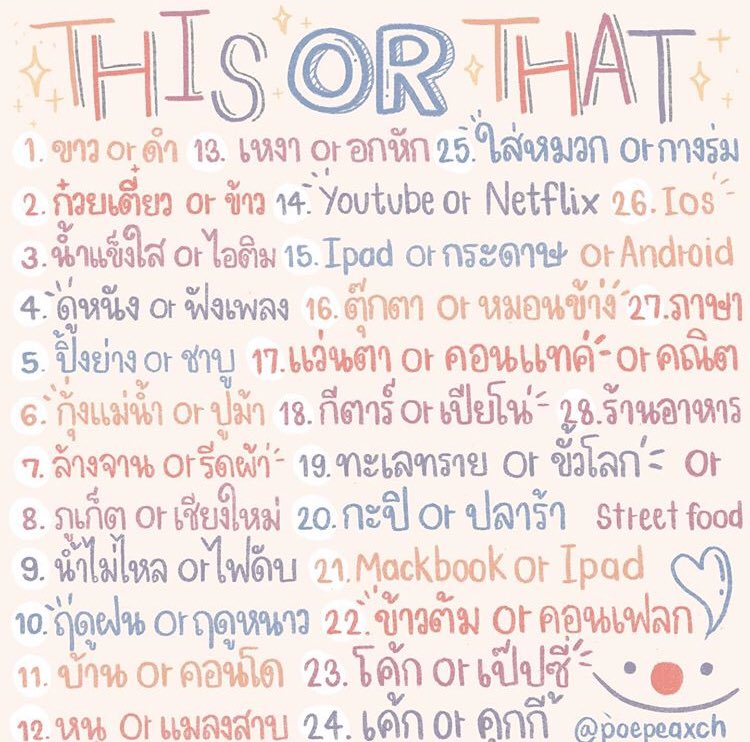 THIS OR THAT
1. ขาว or ดำ
2. ก๋วยเตี๋ยว or ข้าว
3. น้ำแข็งใส or ไอติม
4. ดูหนัง or ฟังเพลง
5. ปิ้งย่าง or ชาบู
6. กุ้งแม่น้ำ or ปูม้า
7. ล้างจาน or รีดผ้า
8. ภูเก็ต or เชียงใหม่
9. น้ำไม่ไหล or ไฟดับ
10. ฤดูฝน or ฤดูหนาว
11. บ้าน or คอนโด
12. หนู or แมลงสาบ
13. เหงา or อกหัก
14. Youtube or Netflix
15. Ipad or กระดาษ
16. ตุ๊กตา or หมอนข้าง
17. แว่นตา or คอนแทค
18. กีตาร์ or เปียโน
19. ทะเลทราย or ขั้วโลก
20. กะปิ or ปลาร้า
21. Mackbook or Ipad
22. ข้าวต้ม or คอนเฟลก
23. โค้ก or เป๊ปซี่
24. เค้ก or คุกกี้
25. ใส่หมวก or กางร่ม
26. Ios
or Android
27. ภาษา
or คณิต
28. ร้านอาหาร
or
Street food
@poepeaxch